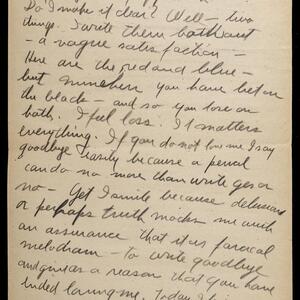 Do I make it clear? Well — two
things. I write them both out
— a vague satisfaction —
Here are the red and blue —
but somehow you have bet on
the black — and so you lose on
both. I feel loss. It matters
everything. If you do not love me I say
goodbye easily because a pencil
can do no more than write yes or
no — Yet I smile because delusions
or perhaps truth mocks me with
an assurance that it is farcical
melodram — to write goodbye
and give as a reason that you have
ended loving me. Today I